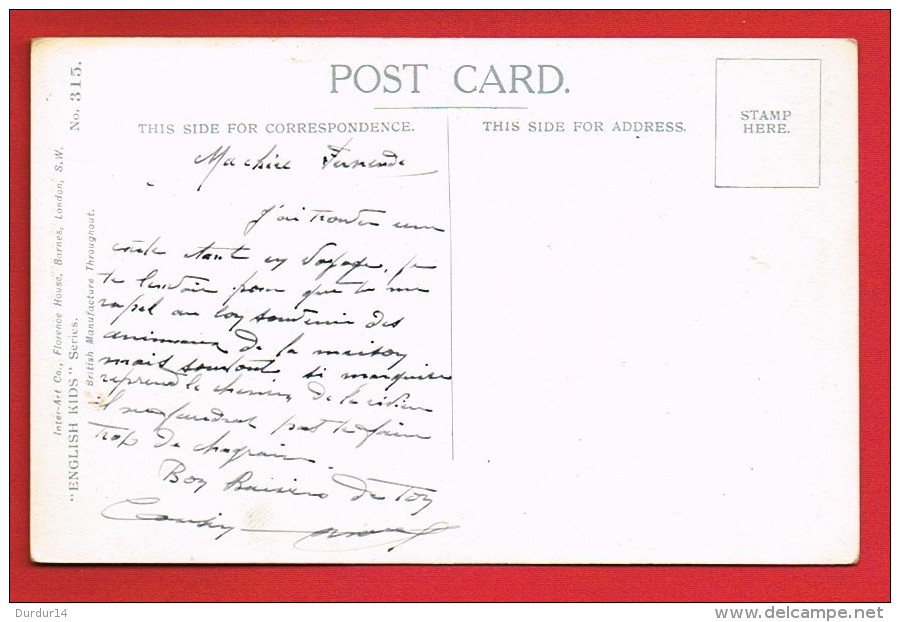 POST CARD.
THIS SIDE FOR CORRESPONDENCE.
THIS SIDE FOR ADDRESS.
STAMP
HERE.
Ma chère Fernande
J'ai trouvé une
carte étant en voyage, je
te l'envoie pour que tu me
rapel au bon souvenir des
animaux de la maison
mais surtout si marquise
reprend le chemin de la
il ne faudrat pas te faire
trop de chagrain.
Bon Baisers de Ton
Cousin
Inter-Art Co., Florence House, Barnes, London, S.W.
"ENGLISH KIDS" Series.
No. 315.
British Manufacture Throughout.
Durdur14
www.delcampe.net